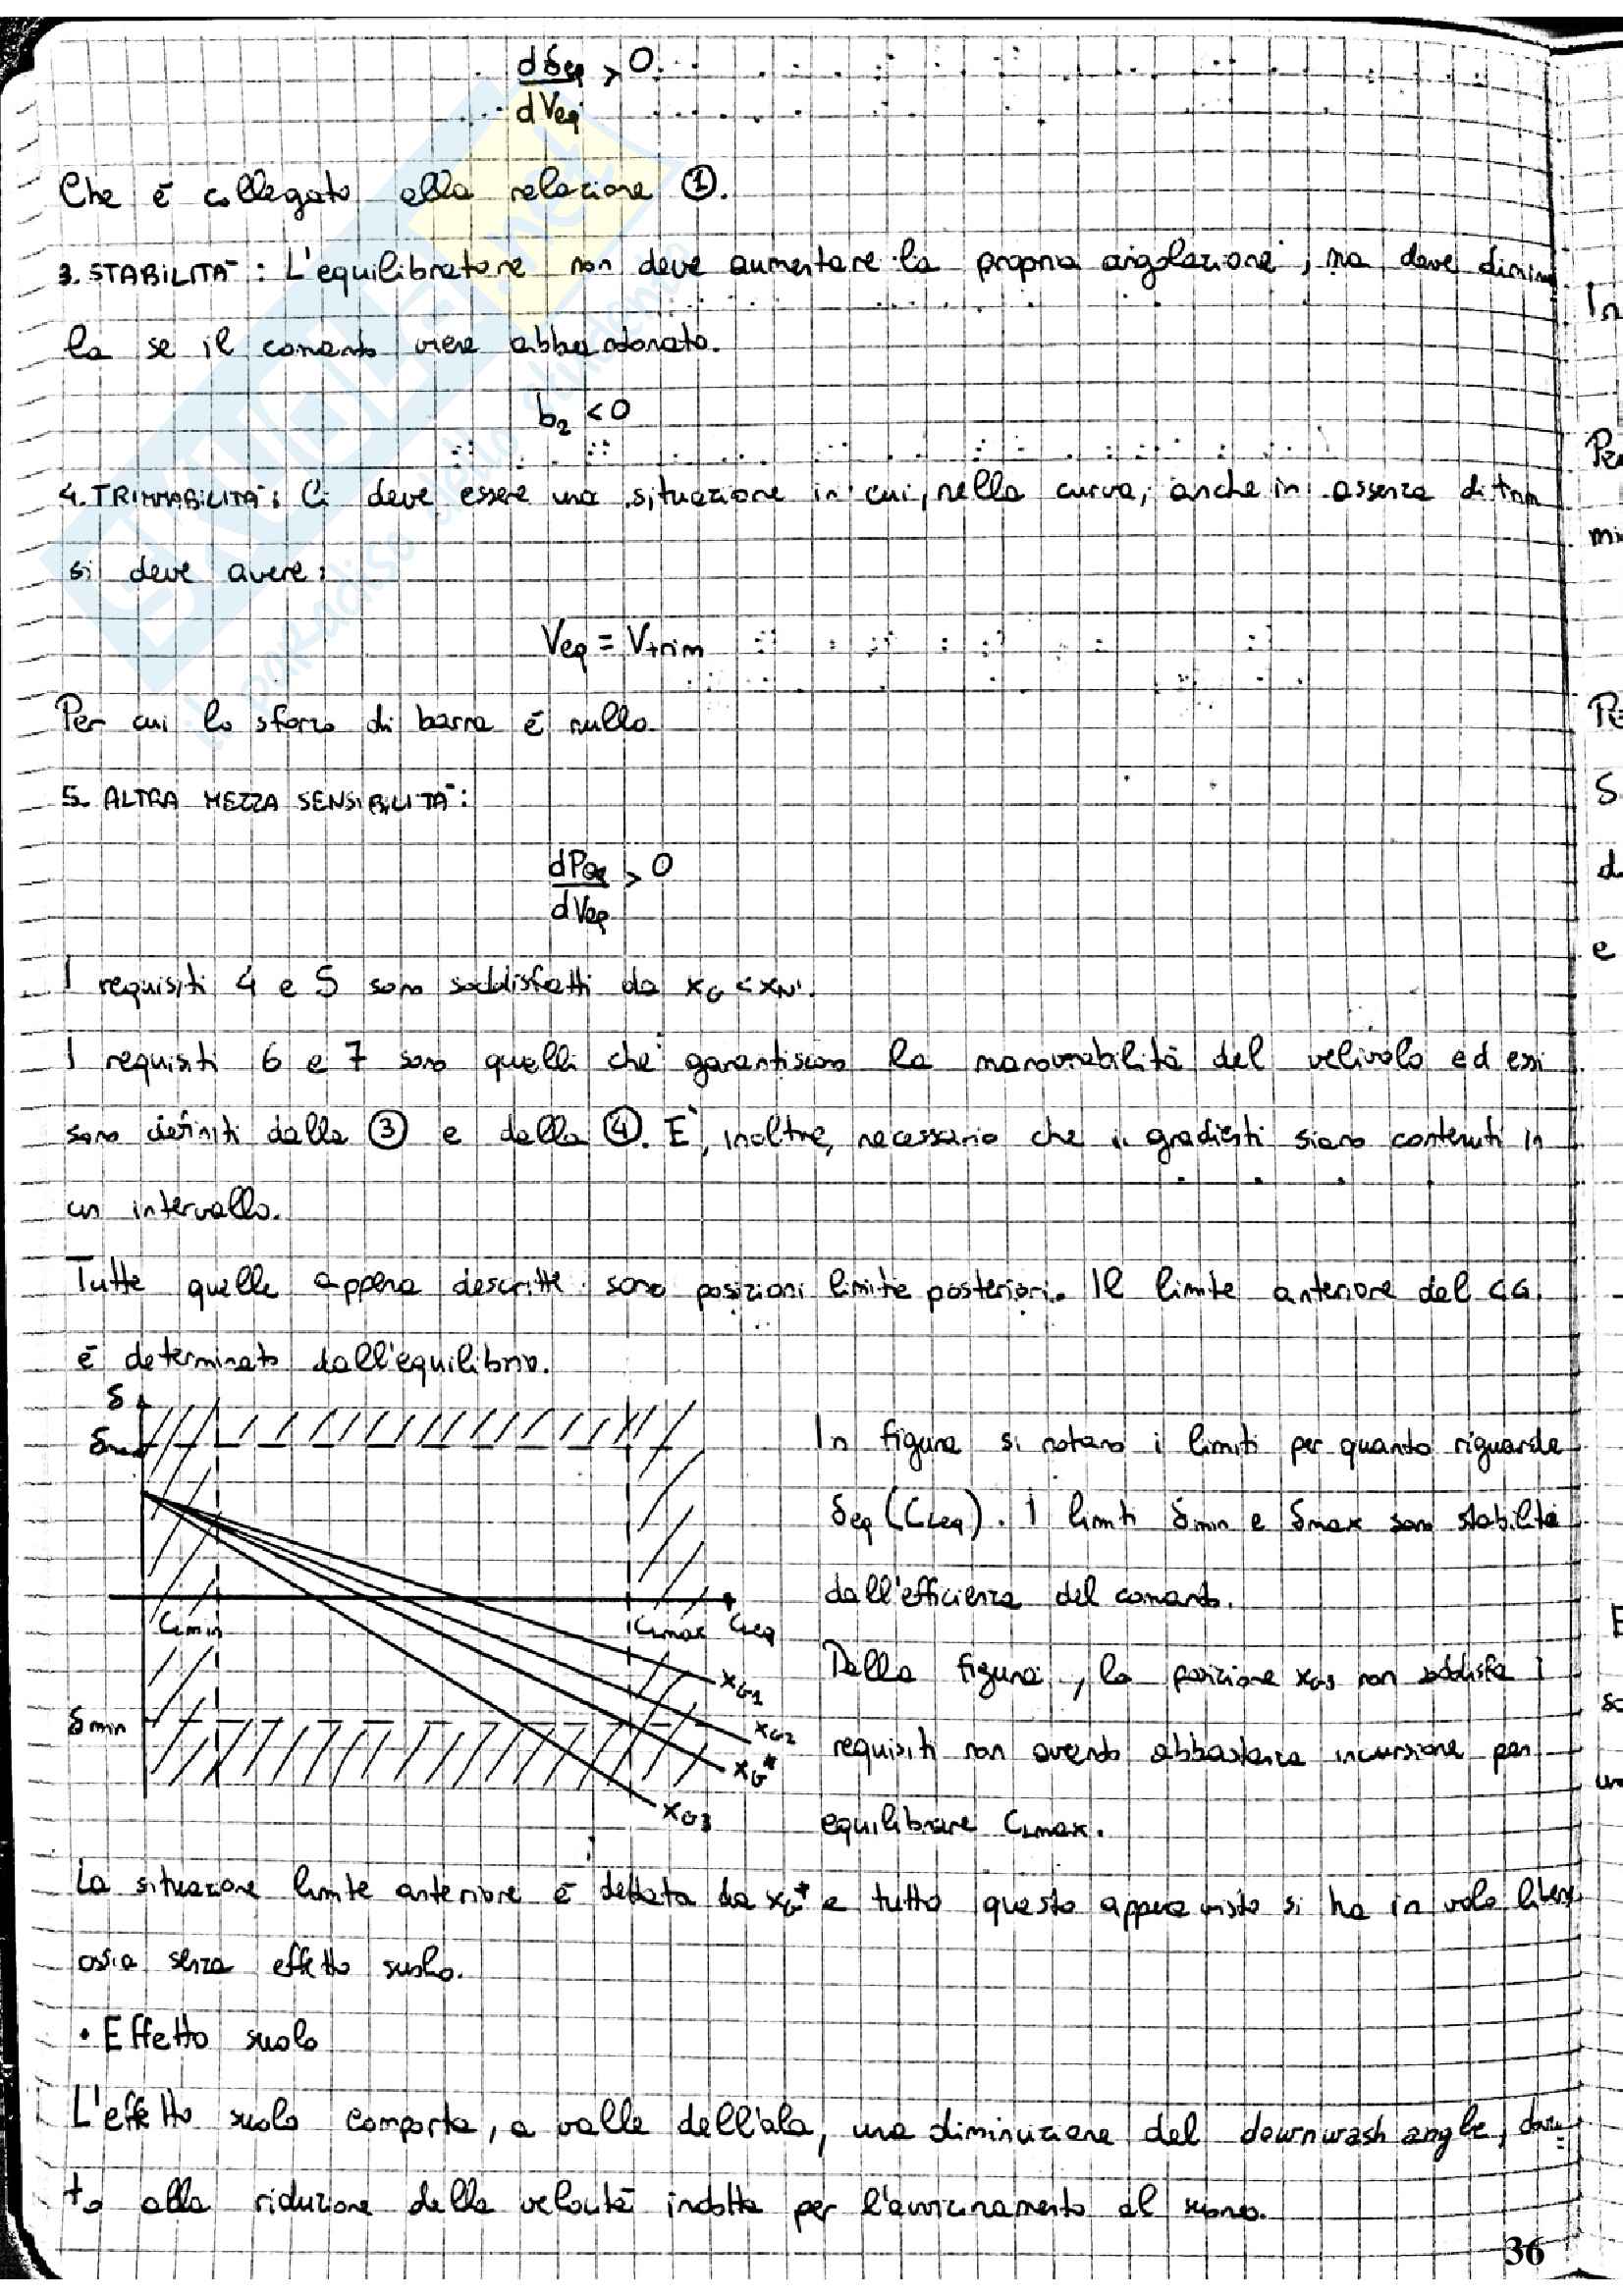 dδeq / dVeq > 0
Che é collegato alla relazione ①.
3. STABILITÀ: L'equilibratore non deve aumentare la propria angolazione, ma deve diminu
la se il comando viene abbandonato.
b₂ < 0
4. TRIMMABILITÀ: Ci deve essere una situazione in cui, nella curva, anche in assenza di trim
si deve avere:
Veq = Vtrim
Per cui lo sforzo di barra é nullo.
5. ALTRA MEZZA SENSIBILITÀ:
dPeq / dVeq > 0
I requisiti 4 e 5 sono soddisfatti da xG < xN'.
I requisiti 6 e 7 sono quelli che garantiscono la manovrabilità del velivolo ed essi
sono definiti dalla ③ e dalla ④. E', inoltre, necessario che i gradienti siano contenuti in
un intervallo.
Tutte quelle appena descritte sono posizioni limite posteriori. Il limite anteriore del CG.
é determinato dall'equilibrio.
δ
δmax
CLmin
CLmax CLeq
δmin
xG1
xG2
xG*
xG3
In figura si notano i limiti per quanto riguarda
δeq (CLeq). I limiti δmin e δmax sono stabilita
dall'efficienza del comando.
Dalla figura, la posizione xG3 non soddisfa i
requisiti non avendo abbastanza incursione per
equilibrare CLmax.
La situazione limite anteriore é dettata da xG* e tutto questo appena visto si ha in volo libero
ossia senza effetto suolo.
• Effetto suolo
L'effetto suolo comporta, a valle dell'ala, una diminuzione del downwash angle, dovu=
to alla riduzione della velocità indotta per l'avvicinamento al suono.
36
SKUOLA.net
il paradiso dello studente